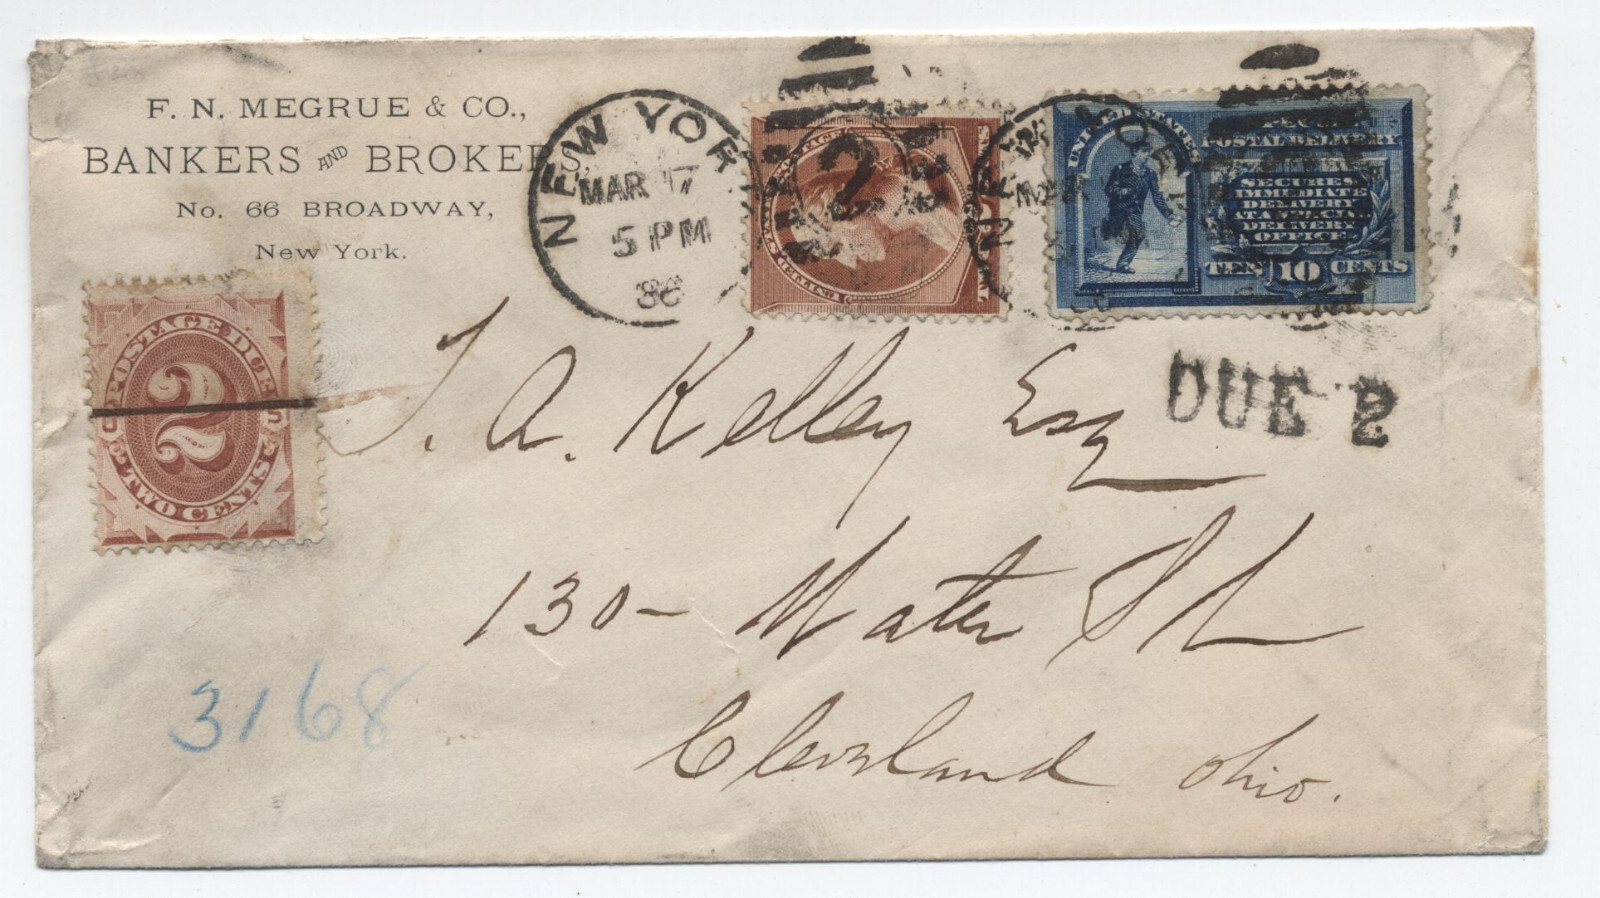 F. N. MEGRUE & CO.,
BANKERS AND BROKERS,
No. 66 BROADWAY,
New York.
NEW YORK
MAR 17
5 PM
86
2
UNITED STATES
POSTAL DELIVERY
SECURES
IMMEDIATE
DELIVERY
AT A SPECIAL
DELIVERY
OFFICE
TEN 10 CENTS
POSTAGE DUE
2
TWO CENTS
U S
DUE 2
T. A. Kelley Esq
130 - Water St
Cleveland Ohio.
3168